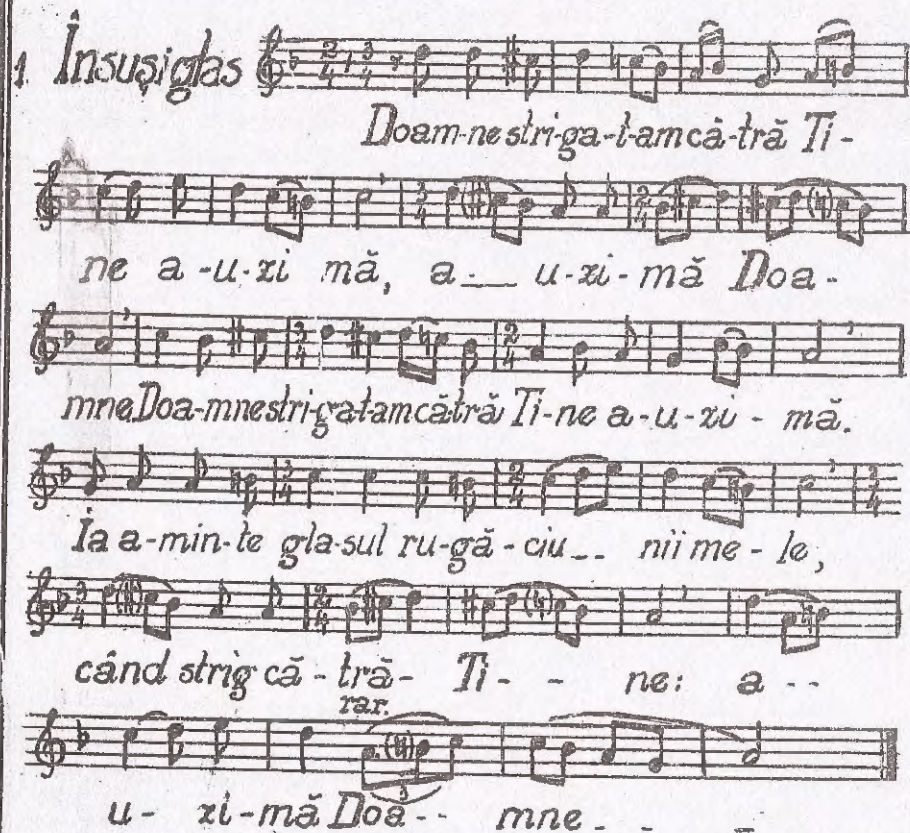 1. Însuși glas
Doam-ne stri-ga-t-am că-tră Ti-
ne a-u-zi mă, a__ u-zi-mă Doa-
mne. Doa-mne stri-gat-am cătră Ti-ne a-u-zi - mă.
Ia a-min-te gla-sul ru-gă-ciu__ nii me-le,
când strig că-tră- Ti- - ne: a --
rar.
u- zi-mă Doa-- mne - - -